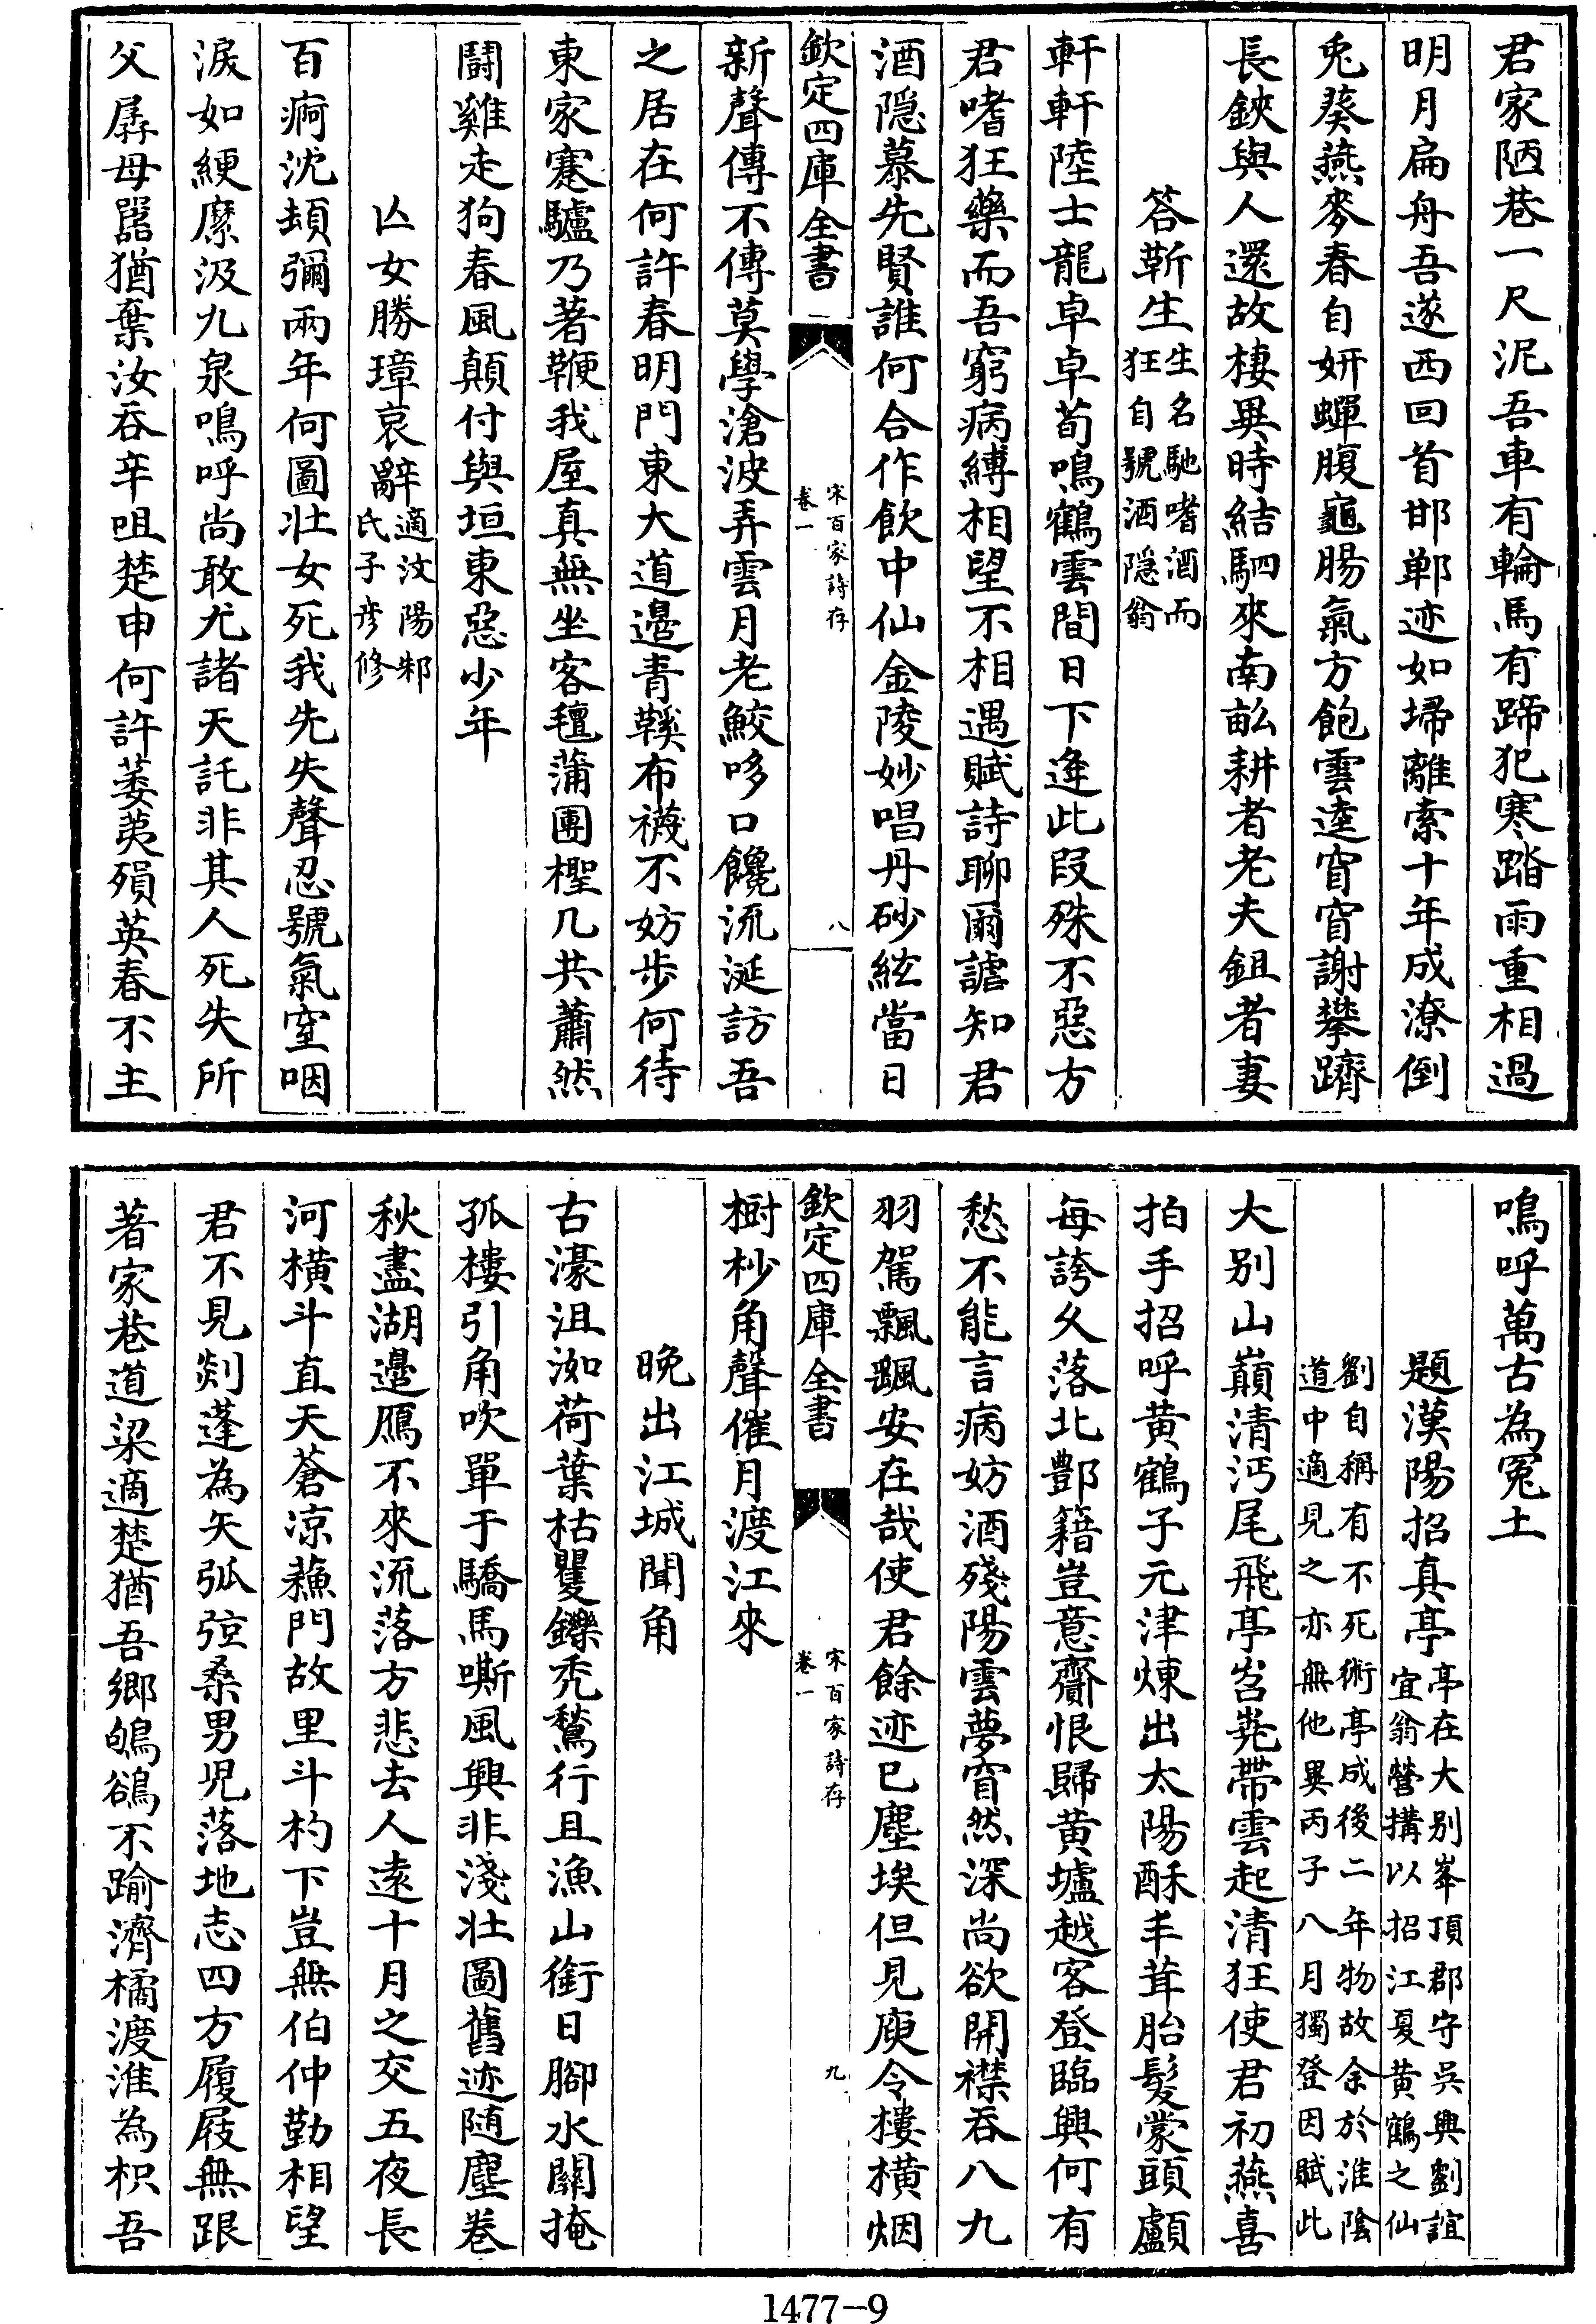 君家陋巷一尺泥吾車有輪馬有蹄犯寒踏雨重相過
明月扁舟吾遂西回首邯鄲迹如埽離索十年成潦倒
兎葵燕麥春自妍蟬腹龜腸氣方飽雲逵窅窅謝攀躋
長鋏與人還故棲異時結駟來南畝耕者老夫鉏者妻
答靳生生名馳嗜酒而狂自號酒隱翁
軒軒陸士龍卓卓荀鳴鶴雲間日下逢此段殊不惡方
君嗜狂藥而吾窮病縛相望不相遇賦詩聊爾謔知君
酒隱慕先賢誰何合作飲中仙金陵妙唱丹砂絃當日
欽定四庫全書
宋百家詩存
卷一
八
新聲傳不傳莫學滄波弄雲月老鮫哆口饞流涎訪吾
之居在何許春明門東大道邊青鞵布襪不妨步何待
東家蹇驢乃著鞭我屋真無坐客氊蒲團檉几共蕭然
鬪雞走狗春風顛付與垣東惡少年
亡女勝璋哀辭適汶陽邾氏子彥修
百痾沈頓彌兩年何圖壯女死我先失聲忍號氣窒咽
淚如綆縻汲九泉鳴呼尚敢尤諸天託非其人死失所
父孱母嚚猶棄汝吞辛咀楚申何許萎荑殞英春不主
鳴呼萬古為冤土
題漢陽招真亭亭在大别峯頂郡守吳興劉誼宜翁營搆以招江夏黃鶴之仙
劉自稱有不死術亭成後二年物故余於淮陰道中適見之亦無他異丙子八月獨登因賦此
大别山巔清沔尾飛亭岧嶤帶雲起清狂使君初燕喜
拍手招呼黄鶴子元津煉出太陽酥丰茸胎髮蒙頭顱
每誇久落北酆籍豈意齎恨歸黄壚越客登臨興何有
愁不能言病妨酒殘陽雲夢窅然深尚欲開襟吞八九
羽駕飄颻安在哉使君餘迹已塵埃但見庾令樓横烟
欽定四庫全書
宋百家詩存
卷一
九
樹杪角聲催月渡江來
晚出江城聞角
古濠沮洳荷葉枯矍鑠秃鶖行且漁山銜日腳水關掩
孤樓引角吹單于驕馬嘶風興非淺壯圖舊迹随塵卷
秋盡湖邊鴈不來流落方悲去人遠十月之交五夜長
河横斗直天蒼凉蘓門故里斗杓下豈無伯仲勤相望
君不見剡蓬為矢弧弦桑男兒落地志四方履屐無跟
著家巷道梁適楚猶吾鄉鴝鵒不踰濟橘渡淮為枳吾
1477-9